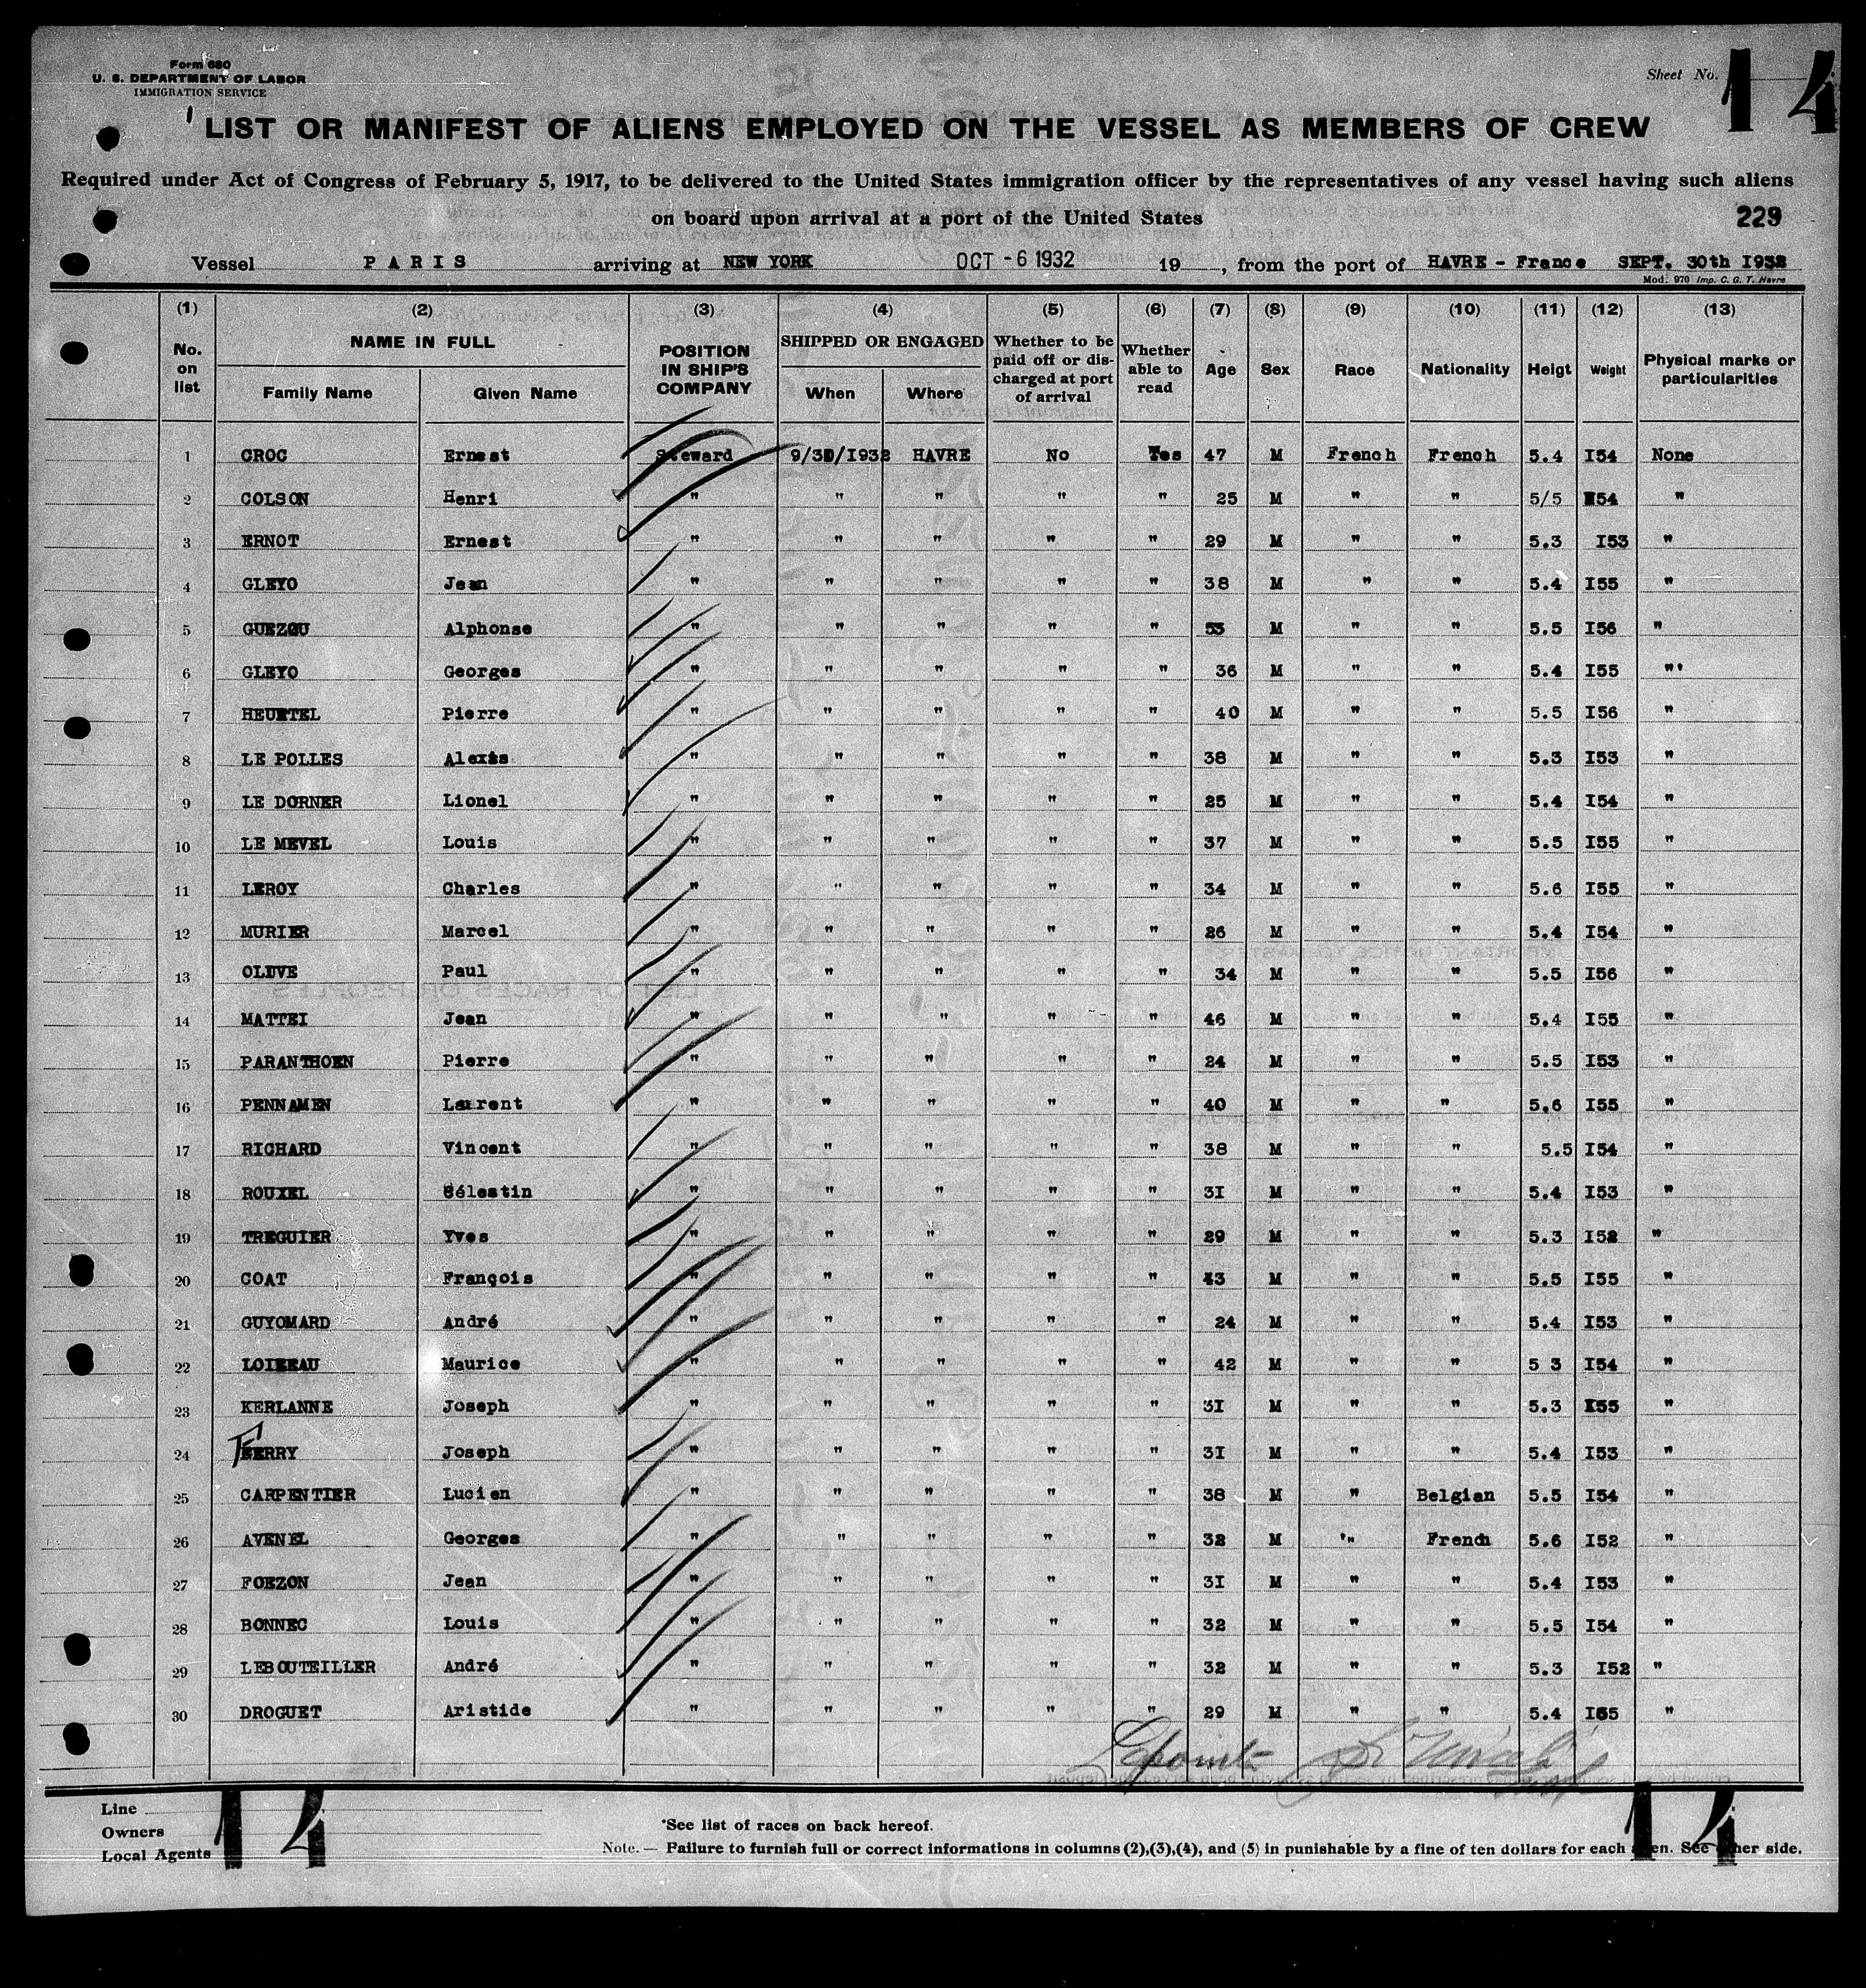 Form 680
U. S. DEPARTMENT OF LABOR
IMMIGRATION SERVICE
Sheet No. 14
LIST OR MANIFEST OF ALIENS EMPLOYED ON THE VESSEL AS MEMBERS OF CREW
Required under Act of Congress of February 5, 1917, to be delivered to the United States immigration officer by the representatives of any vessel having such aliens
on board upon arrival at a port of the United States
229
Vessel PARIS arriving at NEW YORK OCT - 6 1932 19 , from the port of HAVRE - France SEPT. 30th I932
Mod. 970 Imp. C. G. T. Havre
(1) (2) (3) (4) (5) (6) (7) (8) (9) (10) (11) (12) (13)
No. on list NAME IN FULL Family Name Given Name POSITION IN SHIP'S COMPANY SHIPPED OR ENGAGED When Where Whether to be paid off or discharged at port of arrival Whether able to read Age Sex Race Nationality Heigt Weight Physical marks or particularities
1 CROC Ernest Steward 9/30/I932 HAVRE No Yes 47 M French French 5.4 I54 None
2 COLSON Henri " " " " " 25 M " " 5/5 I54 "
3 ERNOT Ernest " " " " " 29 M " " 5.3 I53 "
4 GLEYO Jean " " " " " 38 M " " 5.4 I55 "
5 GUEZOU Alphonse " " " " " 53 M " " 5.5 I56 "
6 GLEYO Georges " " " " " 36 M " " 5.4 I55 "'
7 HEURTEL Pierre " " " " " 40 M " " 5.5 I56 "
8 LE POLLES Alexis " " " " " 38 M " " 5.3 I53 "
9 LE DORNER Lionel " " " " " 25 M " " 5.4 I54 "
10 LE MEVEL Louis " " " " " 37 M " " 5.5 I55 "
11 LEROY Charles " " " " " 34 M " " 5.6 I55 "
12 MURIER Marcel " " " " " 26 M " " 5.4 I54 "
13 OLIVE Paul " " " " " 34 M " " 5.5 I56 "
14 MATTEI Jean " " " " " 46 M " " 5.4 I55 "
15 PARANTHOEN Pierre " " " " " 24 M " " 5.5 I53 "
16 PENNAMEN Laurent " " " " " 40 M " " 5.6 I55 "
17 RICHARD Vincent " " " " " 38 M " " 5.5 I54 "
18 ROUXEL Célestin " " " " " 3I M " " 5.4 I53 "
19 TREGUIER Yves " " " " " 29 M " " 5.3 I52 "
20 COAT François " " " " " 43 M " " 5.5 I55 "
21 GUYOMARD André " " " " " 24 M " " 5.4 I53 "
22 LOIZEAU Maurice " " " " " 42 M " " 5 3 I54 "
23 KERLANNE Joseph " " " " " 3I M " " 5.3 I55 "
24 FERRY Joseph " " " " " 3I M " " 5.4 I53 "
25 CARPENTIER Lucien " " " " " 38 M " Belgian 5.5 I54 "
26 AVENEL Georges " " " " " 32 M " French 5.6 I52 "
27 FOEZON Jean " " " " " 3I M " " 5.4 I53 "
28 BONNEC Louis " " " " " 32 M " " 5.5 I54 "
29 LEBOUTEILLER André " " " " " 32 M " " 5.3 I52 "
30 DROGUET Aristide " " " " " 29 M " " 5.4 I55 "
Line
Owners
Local Agents
14
14
*See list of races on back hereof.
Note. — Failure to furnish full or correct informations in columns (2),(3),(4), and (5) in punishable by a fine of ten dollars for each alien. See other side.